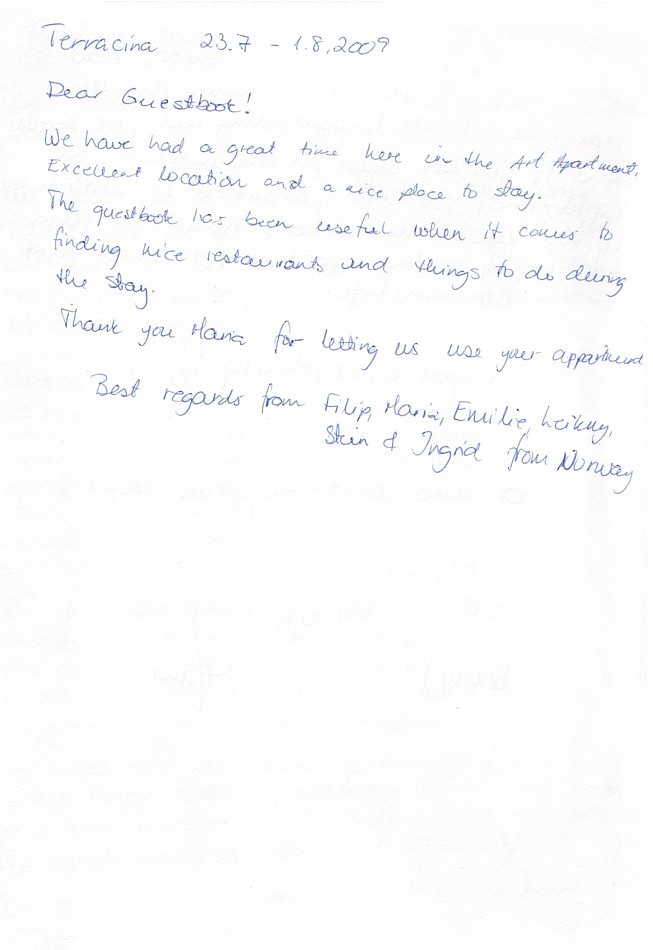 Terracina 23.7 - 1.8.2009
Dear Guestbook!
We have had a great time here in the Art Apartment.
Excellent location and a nice place to stay.
The guestbook has been useful when it comes to
finding nice restaurants and things to do during
the stay.
Thank you Maria for letting us use your appartment
Best regards from Filip, Maria, Emilie, Leikny,
Stein & Ingrid from Norway